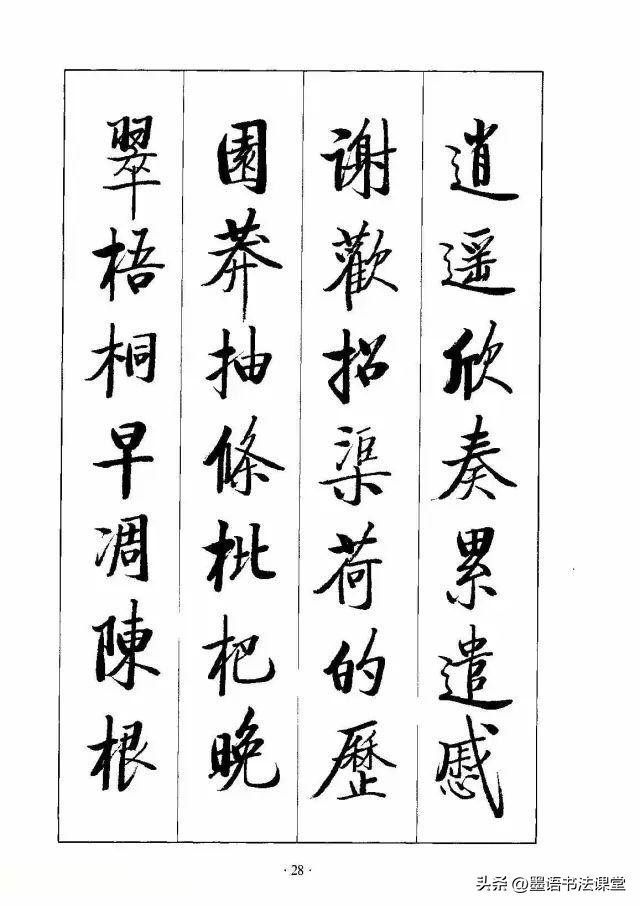 逍遥欣奏累遣慼
谢歡招渠荷的歷
園莽抽條枇杷晚
翠梧桐早凋陳根
·28·
头条@墨语书法课堂